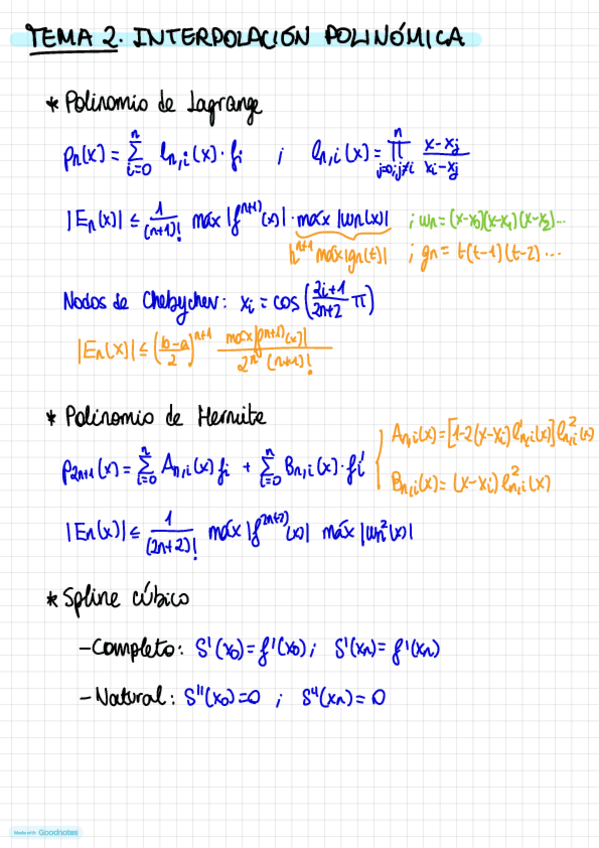 TEMA 2. INTERPOLACIÓN POLINÓMICA
* Polinomio de Lagrange
pₙ(x) = Σᵢ₌₀ⁿ lₙ,ᵢ(x) · fᵢ ; lₙ,ᵢ(x) = ∏ⱼ₌₀,ⱼ≠ᵢⁿ (x-xⱼ)/(xᵢ-xⱼ)
|Eₙ(x)| ≤ 1/(n+1)! máx |f⁽ⁿ⁺¹⁾(x)| · máx |wₙ(x)| ; wₙ = (x-x₀)(x-x₁)(x-x₂)...
hⁿ⁺¹ máx |gₙ(t)| ; gₙ = t(t-1)(t-2)...
Nodos de Chebychev: xᵢ = cos((2i+1)/(2n+2) π)
|Eₙ(x)| ≤ ((b-a)/2)ⁿ⁺¹ máx|fⁿ⁺¹⁾(x)| / 2ⁿ (n+1)!
* Polinomio de Hermite
p₂ₙ₊₁(x) = Σᵢ₌₀ⁿ Aₙ,ᵢ(x) fᵢ + Σᵢ₌₀ⁿ Bₙ,ᵢ(x) · fᵢ'
Aₙ,ᵢ(x) = [1-2(x-xᵢ) l'ₙ,ᵢ(x)] l²ₙ,ᵢ(x)
Bₙ,ᵢ(x) = (x-xᵢ) l²ₙ,ᵢ(x)
|Eₙ(x)| ≤ 1/(2n+2)! máx |f²ⁿ⁺²⁾(x)| máx |wₙ²(x)|
* Spline cúbico
- Completo: S'(x₀) = f'(x₀) ; S'(xₙ) = f'(xₙ)
- Natural: S''(x₀) = 0 ; S''(xₙ) = 0
Made with Goodnotes